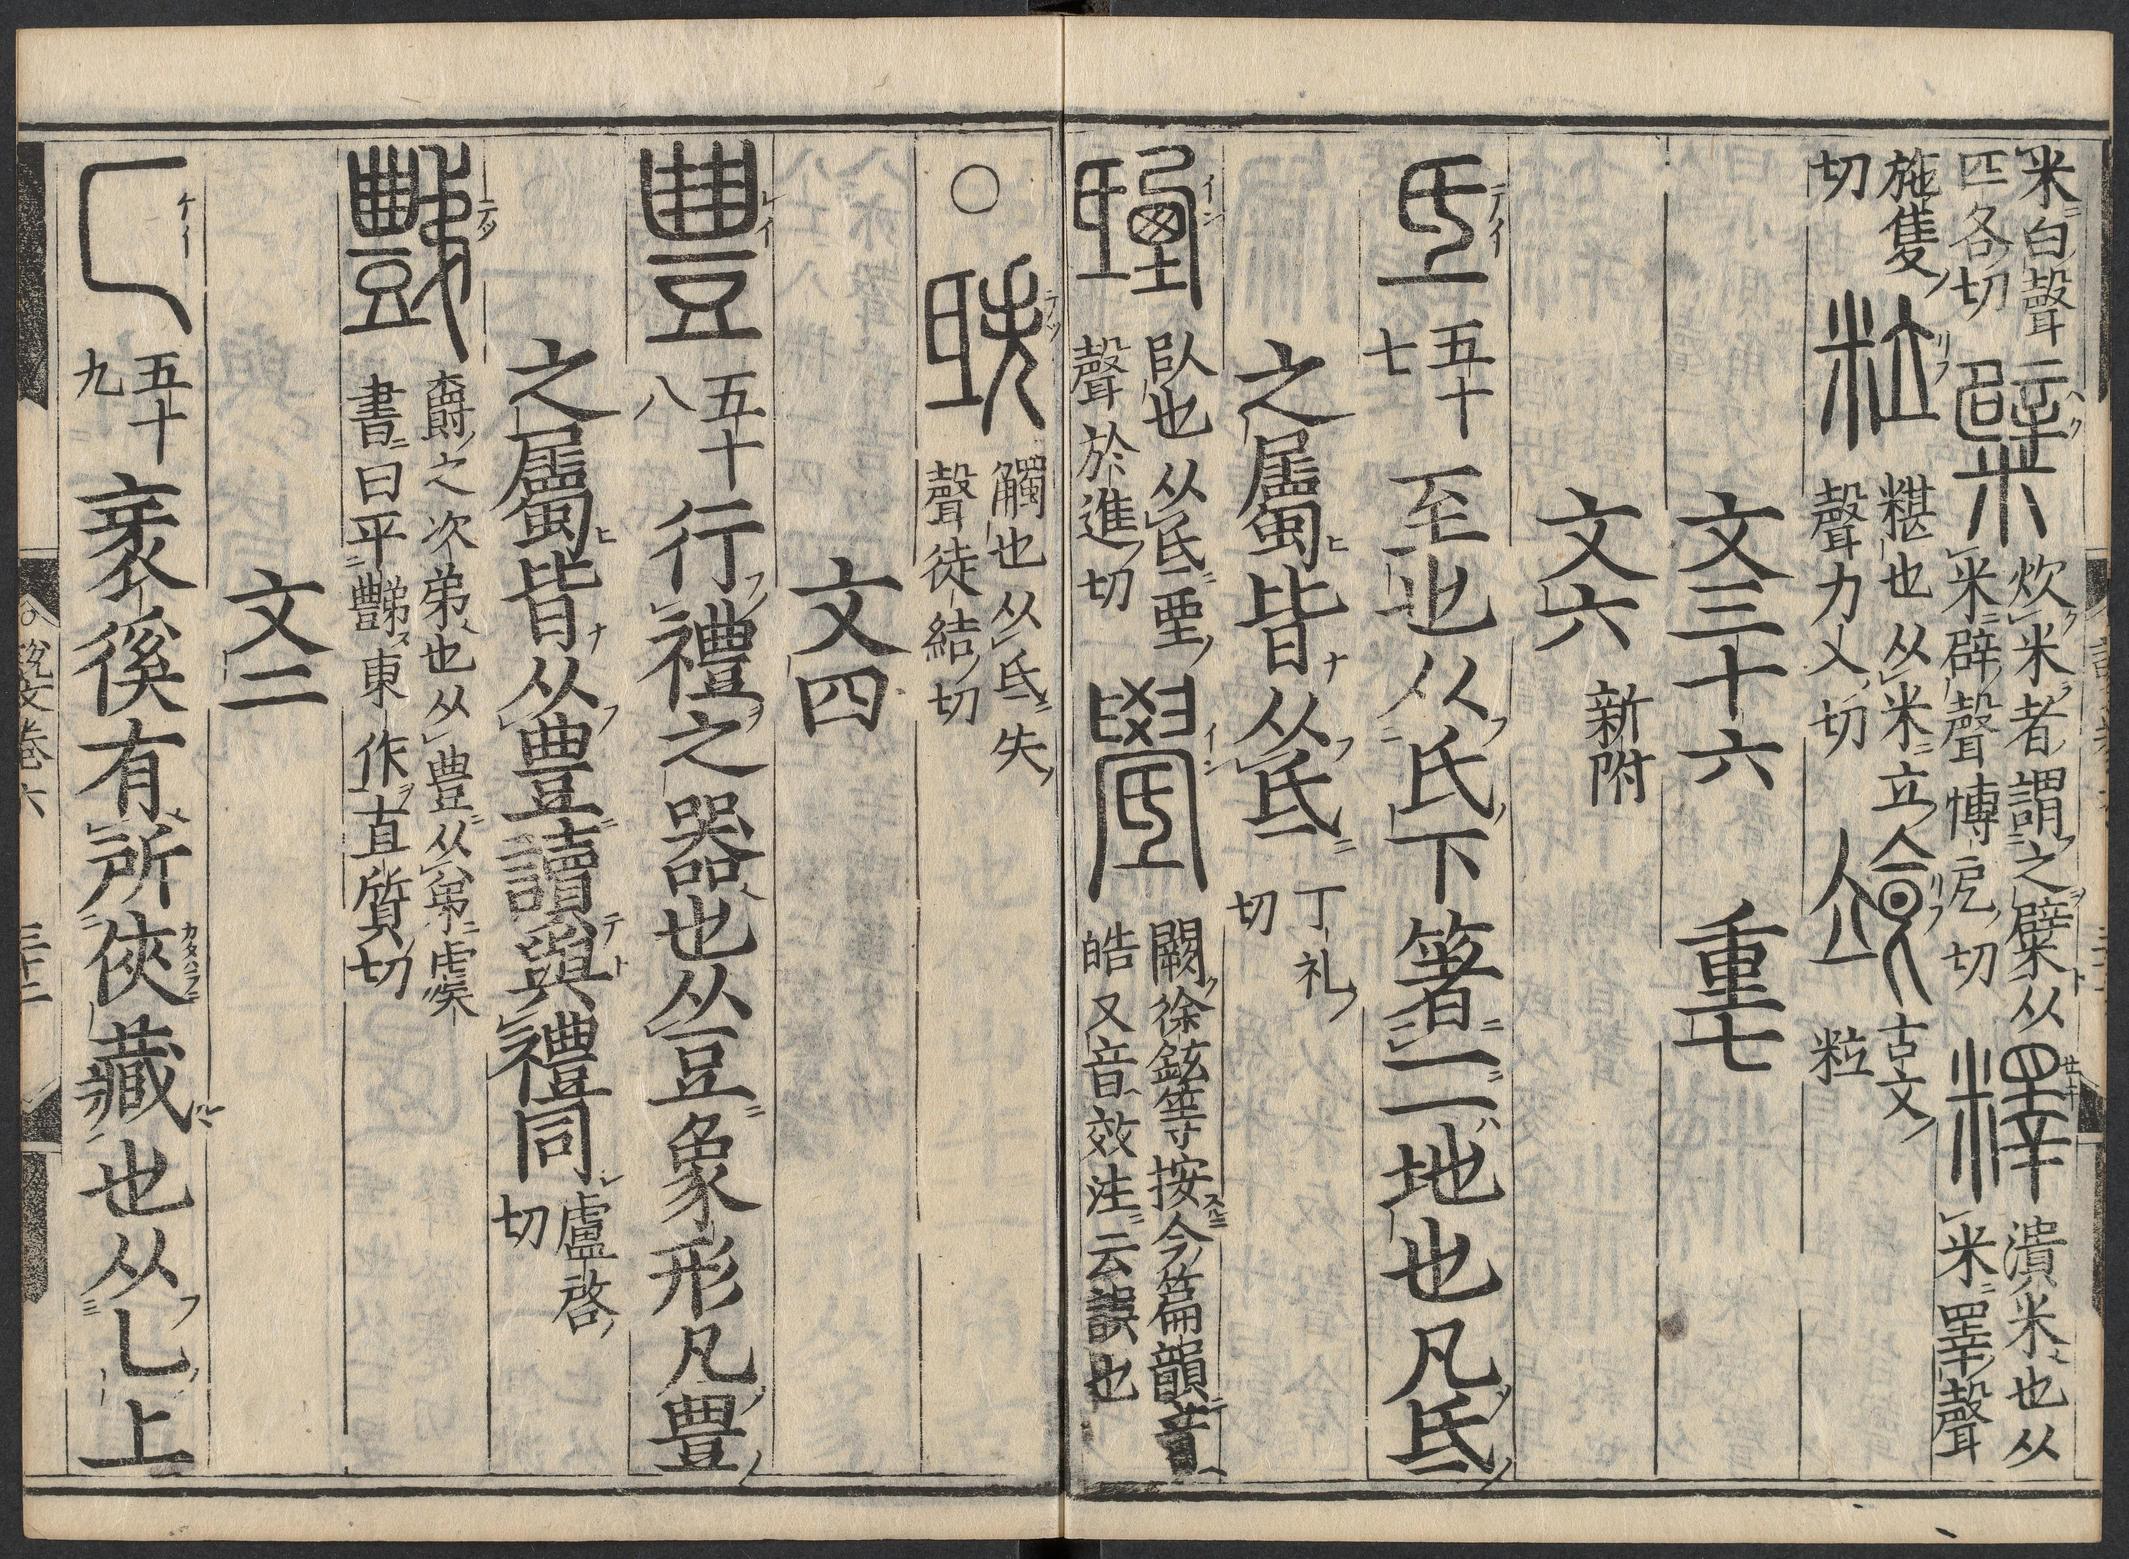 米白聲
匹各切
糪
炊米者謂之糪从
米辟聲博戹切
釋
漬米也从
米睪聲
施隻
切
粒
糂也从米立
聲力入切
古文
粒
文三十六 重七
文六 新附
氐
五十
七
至也从氏下箸一一地也凡氐
之屬皆从氐
丁礼
切
臥也从氐垔
聲於進切
闕徐鉉等按今篇韻音
皓又音效注云誤也
〇
觸也从氐失
聲徒結切
文四
豊
五十
八
行禮之器也从豆象形凡豊
之屬皆从豊讀與禮同
盧啓
切
豑
爵之次弟也从豊从弟虞
書曰平豑東作直質切
文二
匸
五十
九
衺徯有所俠藏也从乚上
說文卷六 三十二